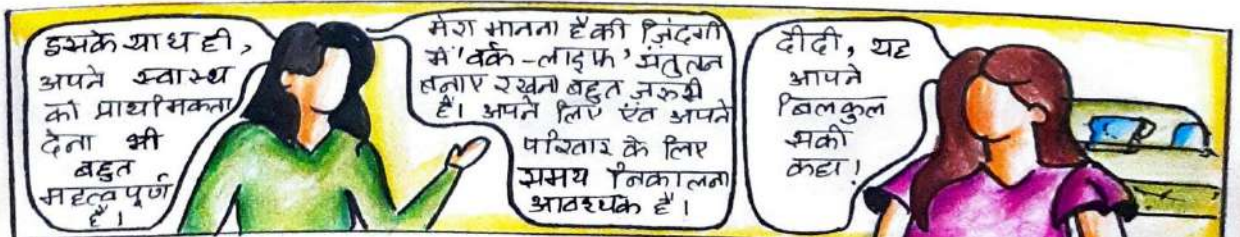 इसके साथ ही,
अपने स्वास्थ
को प्राथमिकता
देना भी
बहुत
महत्वपूर्ण
है।
मेरा मानना है की ज़िंदगी
में 'वर्क-लाइफ' संतुलन
बनाए रखना बहुत जरूरी
है। अपने लिए एंव अपने
परिवार के लिए
समय निकालना
आवश्यक है।
दीदी, यह
आपने
बिलकुल
सही
कहा!